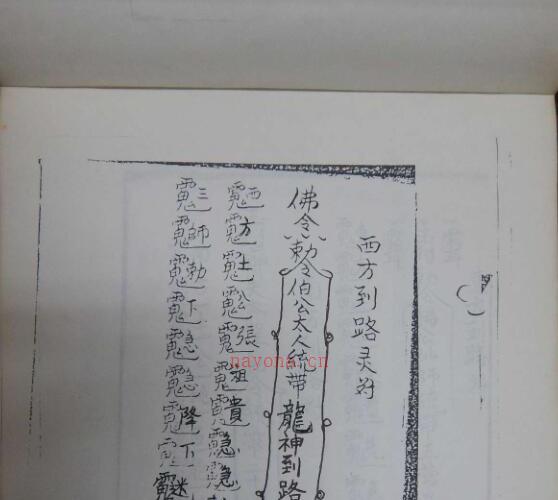 西方到路灵符
佛令勅令伯公太人統带龍神到路
西方土公張祖貴隐隐
三師勅下隐隐降下迷
nayona.cn